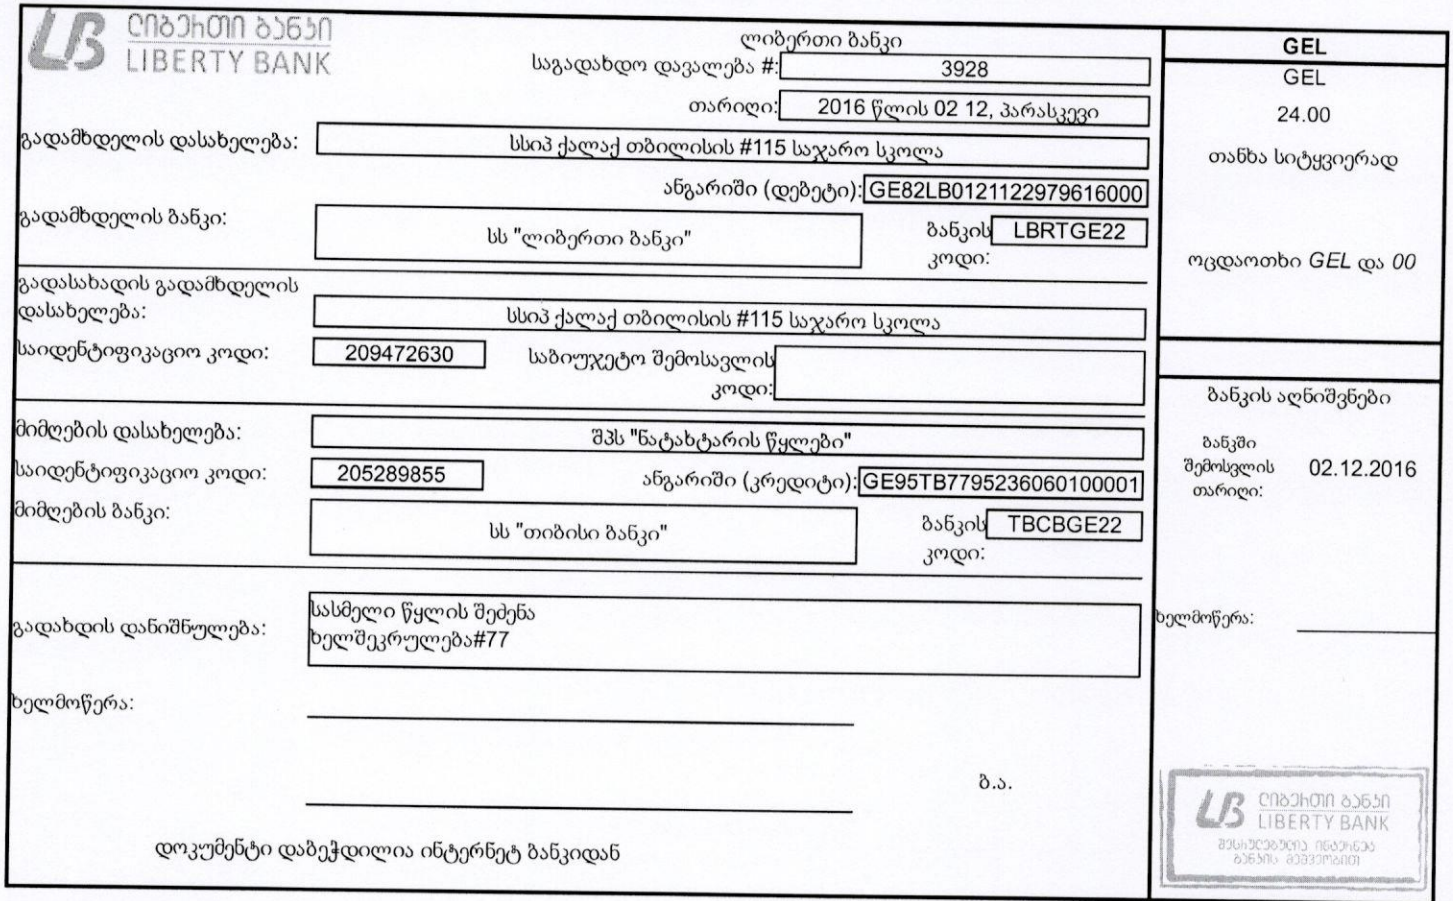 ლიბერთი ბანკი
LIBERTY BANK
ლიბერთი ბანკი
საგადახდო დავალება #: 3928
თარიღი: 2016 წლის 02 12, პარასკევი
გადამხდელის დასახელება: სსიპ ქალაქ თბილისის #115 საჯარო სკოლა
ანგარიში (დებეტი): GE82LB0121122979616000
გადამხდელის ბანკი: სს "ლიბერთი ბანკი" ბანკის კოდი: LBRTGE22
გადასახადის გადამხდელის
დასახელება: სსიპ ქალაქ თბილისის #115 საჯარო სკოლა
საიდენტიფიკაციო კოდი: 209472630 საბიუჯეტო შემოსავლის
კოდი:
მიმღების დასახელება: შპს "ნატახტარის წყლები"
საიდენტიფიკაციო კოდი: 205289855 ანგარიში (კრედიტი): GE95TB7795236060100001
მიმღების ბანკი: სს "თიბისი ბანკი" ბანკის კოდი: TBCBGE22
გადახდის დანიშნულება: სასმელი წყლის შეძენა
ხელშეკრულება#77
ხელმოწერა:
ბ.ა.
დოკუმენტი დაბეჭდილია ინტერნეტ ბანკიდან
GEL
GEL
24.00
თანხა სიტყვიერად
ოცდაოთხი GEL და 00
ბანკის აღნიშვნები
ბანკში
შემოსვლის 02.12.2016
თარიღი:
ხელმოწერა:
ლიბერთი ბანკი
LIBERTY BANK
შესრულებულია ინტერნეტ
ბანკის მეშვეობით